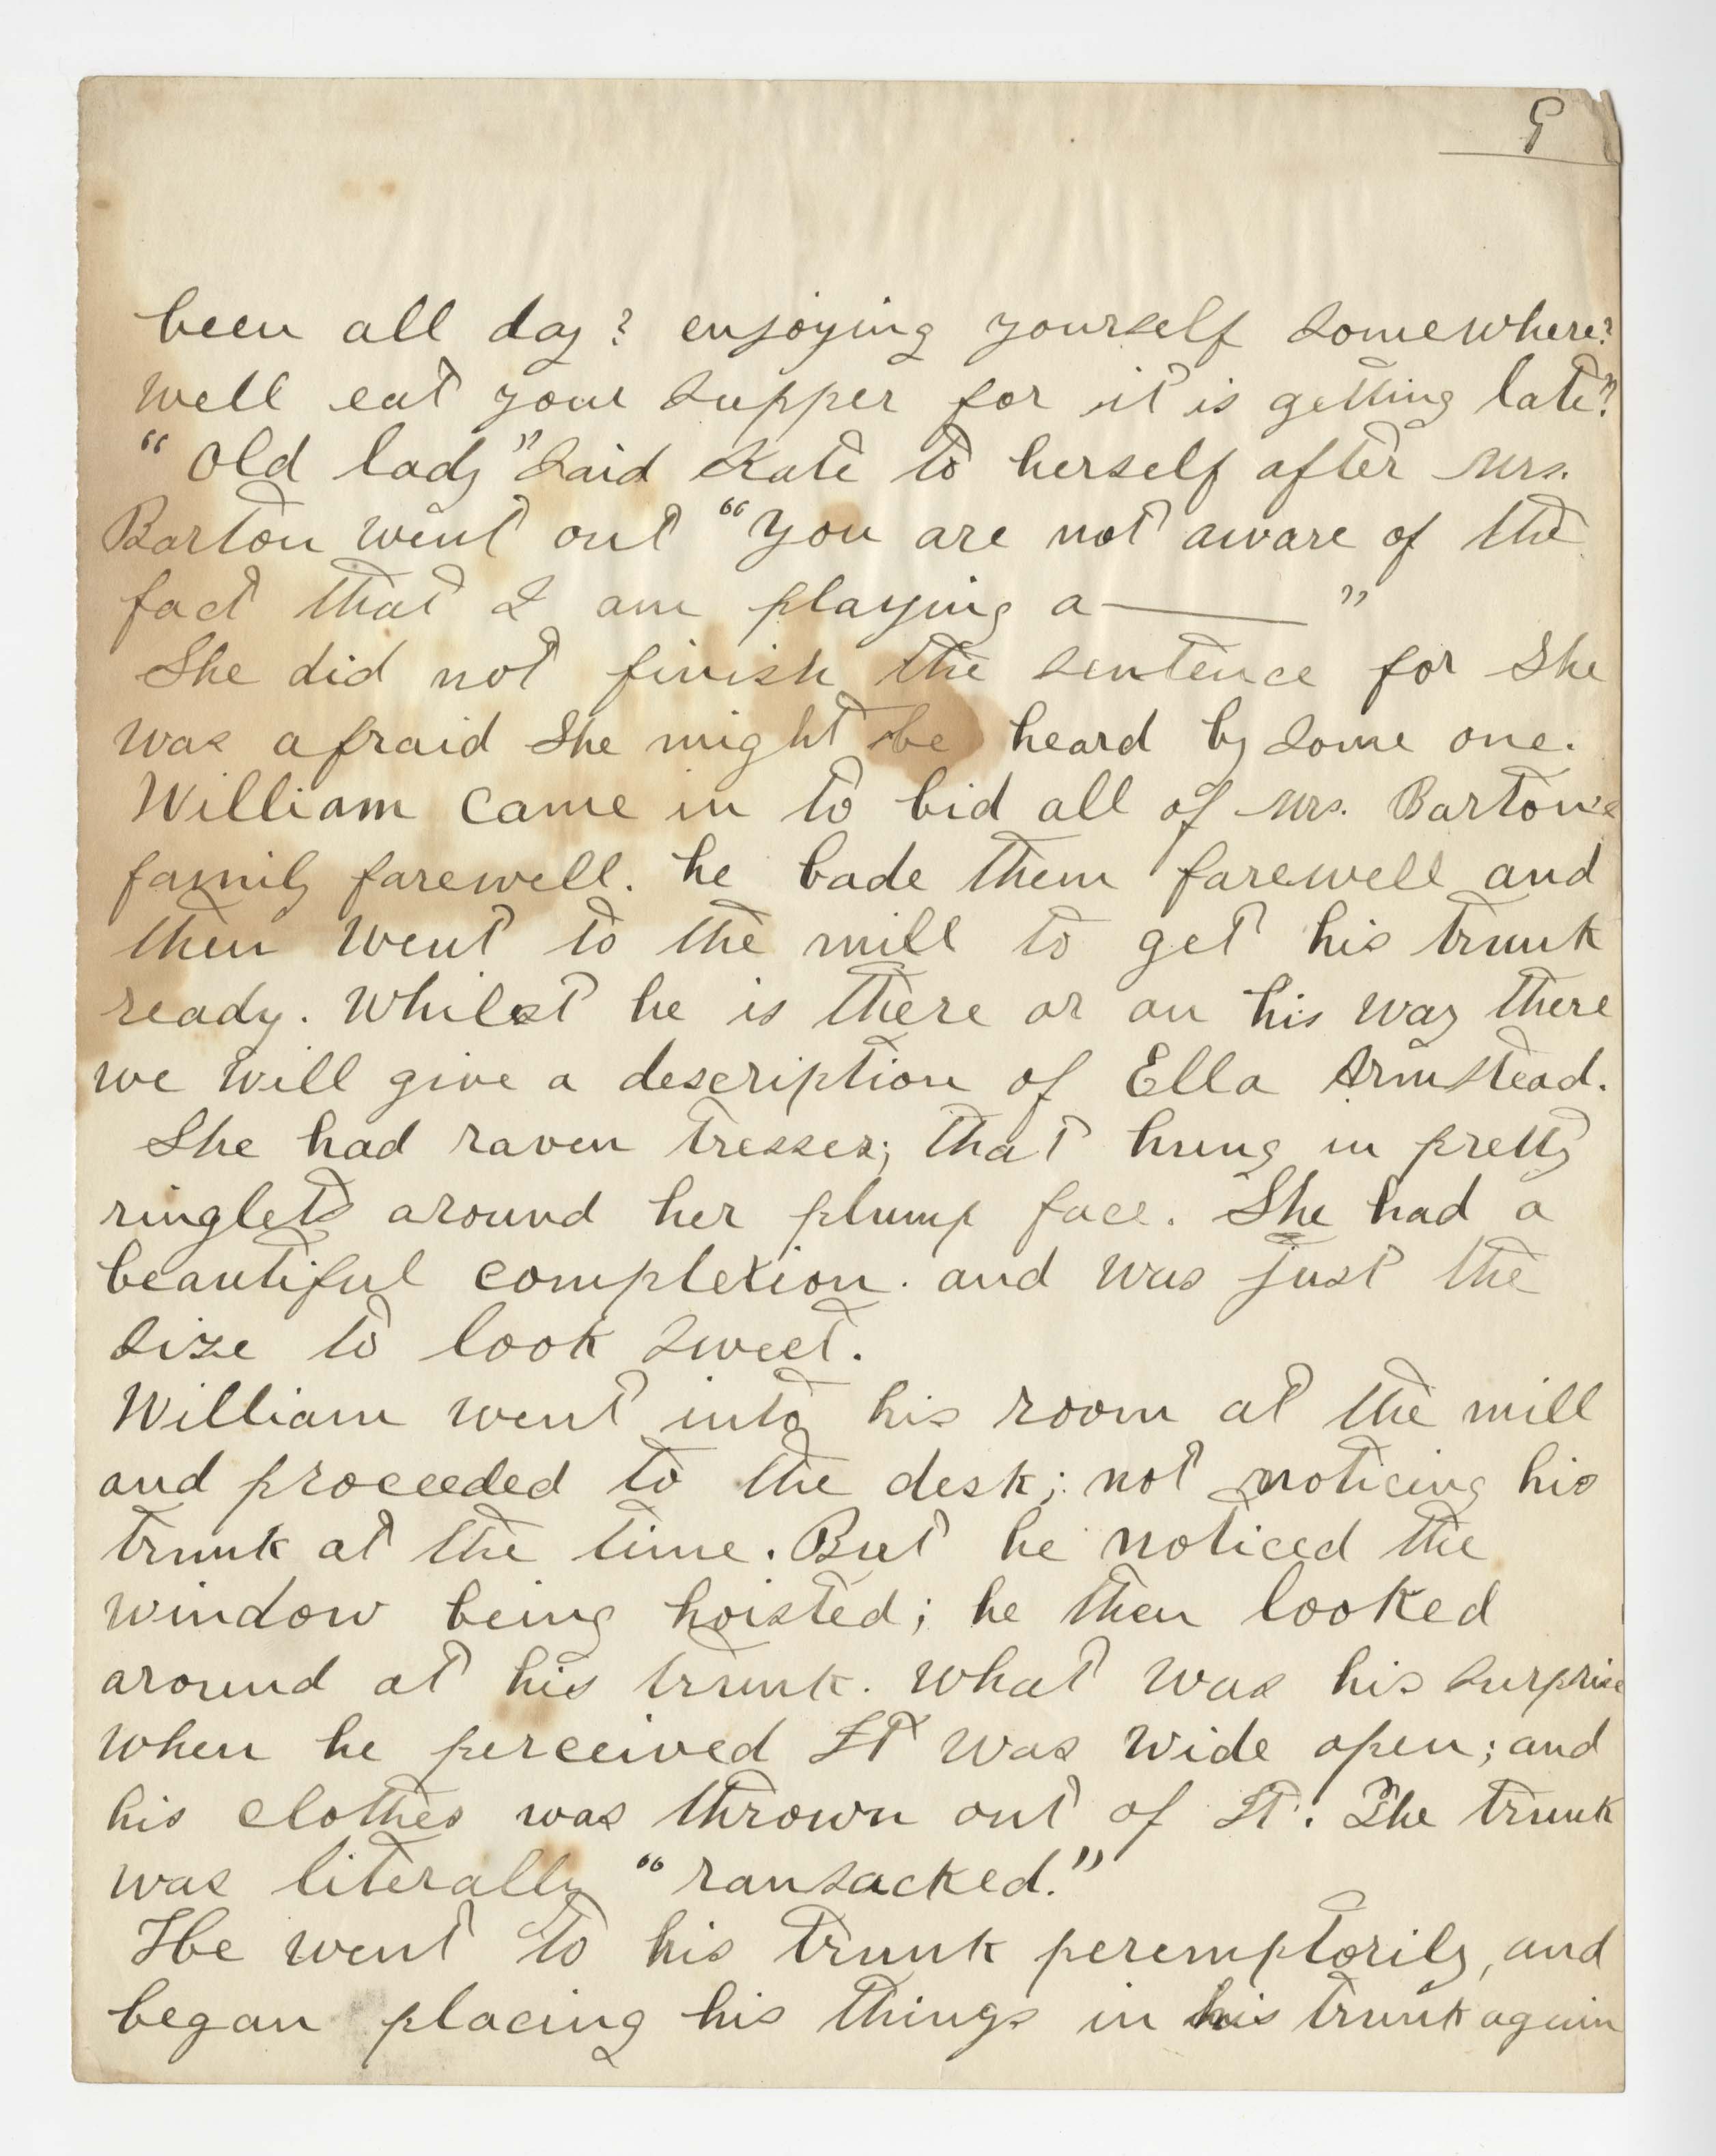 9
been all day? enjoying yourself somewhere?
well eat your supper for it is getting late?"
"Old lady" said Kate to herself after Mrs.
Barton went out "you are not aware of the
fact that I am playing a——— "
She did not finish the sentence for she
was afraid she might be heard by some one.
William came in to bid all of Mrs. Barton's
family farewell. he bade them farewell and
then went to the mill to get his trunk
ready. Whilst he is there or on his way there
we will give a description of Ella Armstead.
She had raven tresses; that hung in pretty
ringlets around her plump face. She had a
beautiful complexion. and was just the
size to look sweet.
William went into his room at the mill
and proceeded to the desk; not noticing his
trunk at the time. But he noticed the
window being hoisted; he then looked
around at his trunk. what was his surprise
when he perceived It was wide open; and
his clothes was thrown out of It. The trunk
was literally "ransacked."
He went to his trunk peremptorily, and
began placing his things in his trunk again